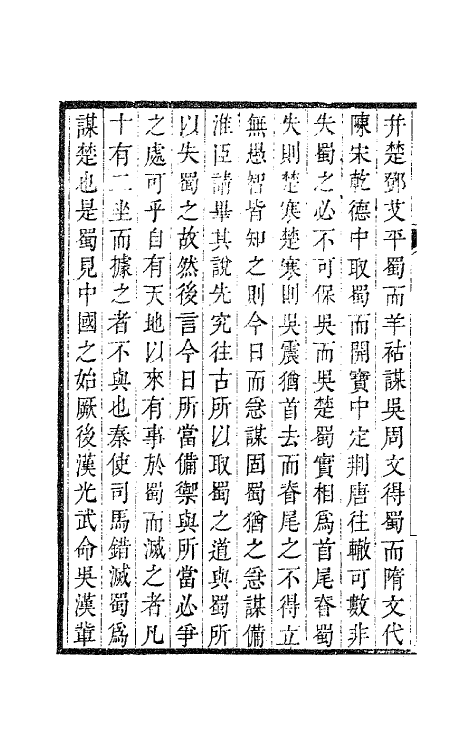 并楚鄧艾平蜀而羊祜謀吳周文得蜀而隋文代
陳宋乾德中取蜀而開寶中定荆唐往轍可數非
失蜀之必不可保吳而吳楚蜀實相爲首尾脊蜀
失則楚寒楚寒則吳震猶首去而脊尾之不得立
無愚智皆知之則今日而急謀固蜀猶之急謀備
淮臣請畢其說先究往古所以取蜀之道與蜀所
以失蜀之故然後言今日所當備禦與所當必爭
之處可乎自有天地以來有事於蜀而滅之者凡
十有二坐而據之者不與也秦使司馬錯滅蜀爲
謀楚也是蜀見中國之始厥後漢光武命吳漢軰